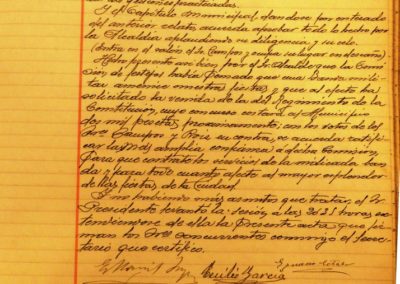 Y el Capítulo Municipal dándose por enterado
del anterior relato, acuerda aprobar todo lo hecho por
la Alcaldía aplaudiendo su diligencia y su celo.
(Entra en el salón el Sr. Campos y ocupa su lugar en escaños)
Hizo presente también por el Sr. Alcalde que la Comi
sión de festejos había pensado que una Banda mili
tar amenice nuestras fiestas y que al efecto ha
solicitado la venida de la del Regimiento de la
Constitución, cuyo concurso costará al Municipio
dos mil pesetas próximamente; con los votos de los
Sres. Campos y en contra, se acuerda ratifi
car la más amplia confianza á dicha Comisión
para que contrate los servicios de la indicada ban
da y para todo cuanto afecte al mayor esplendor
de las fiestas de la Ciudad.
Y no habiendo más asuntos que tratar, el Sr.
Presidente levantó la sesión a las horas ex
tendiéndose de ella la presente acta que fir
man los Sres. concurrentes conmigo el Secre
tario que certifico.
Emilio García